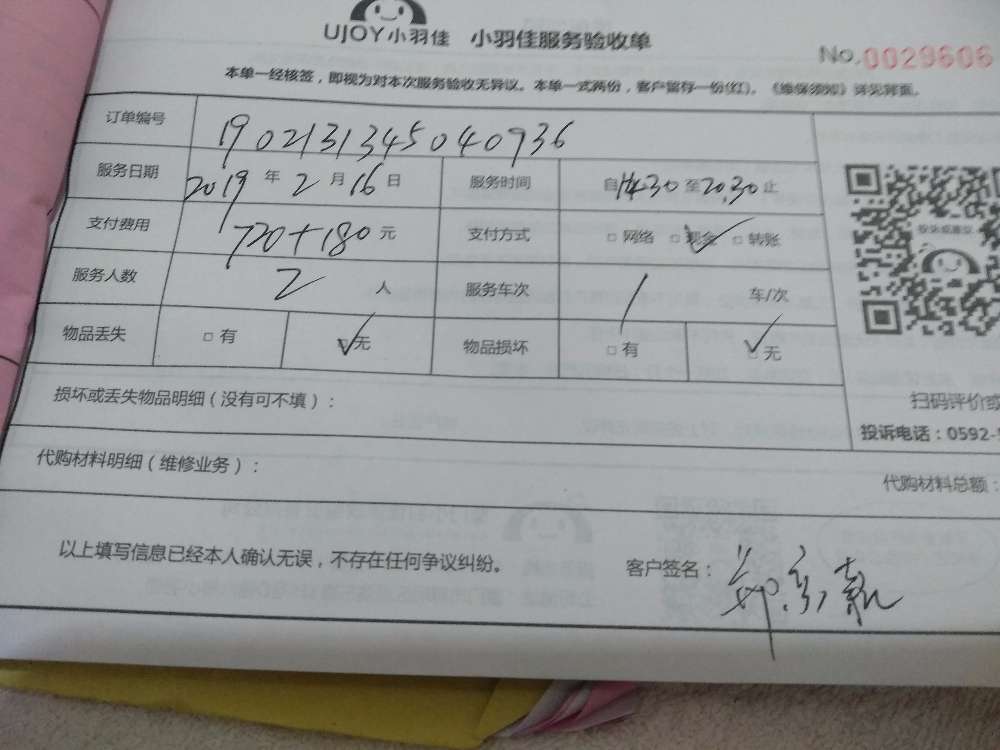 UJOY小羽佳 小羽佳服务验收单
No. 0029606
本单一经核签，即视为对本次服务验收无异议。本单一式两份，客户留存一份(红)。《维保须知》详见背面。
订单编号 1902131345040936
服务日期 2019 年 2 月 16 日 服务时间 自 14:30 至 20:30 止
支付费用 720+180 元 支付方式 □ 网络 □ 现金 ✓ □ 转账
服务人数 2 人 服务车次 1 车/次
物品丢失 □ 有 ✓ □ 无 物品损坏 □ 有 ✓ □ 无
损坏或丢失物品明细（没有可不填）：
扫码评价或
投诉电话：0592-
代购材料明细（维修业务）：
代购材料总额：
以上填写信息已经本人确认无误，不存在任何争议纠纷。
客户签名：